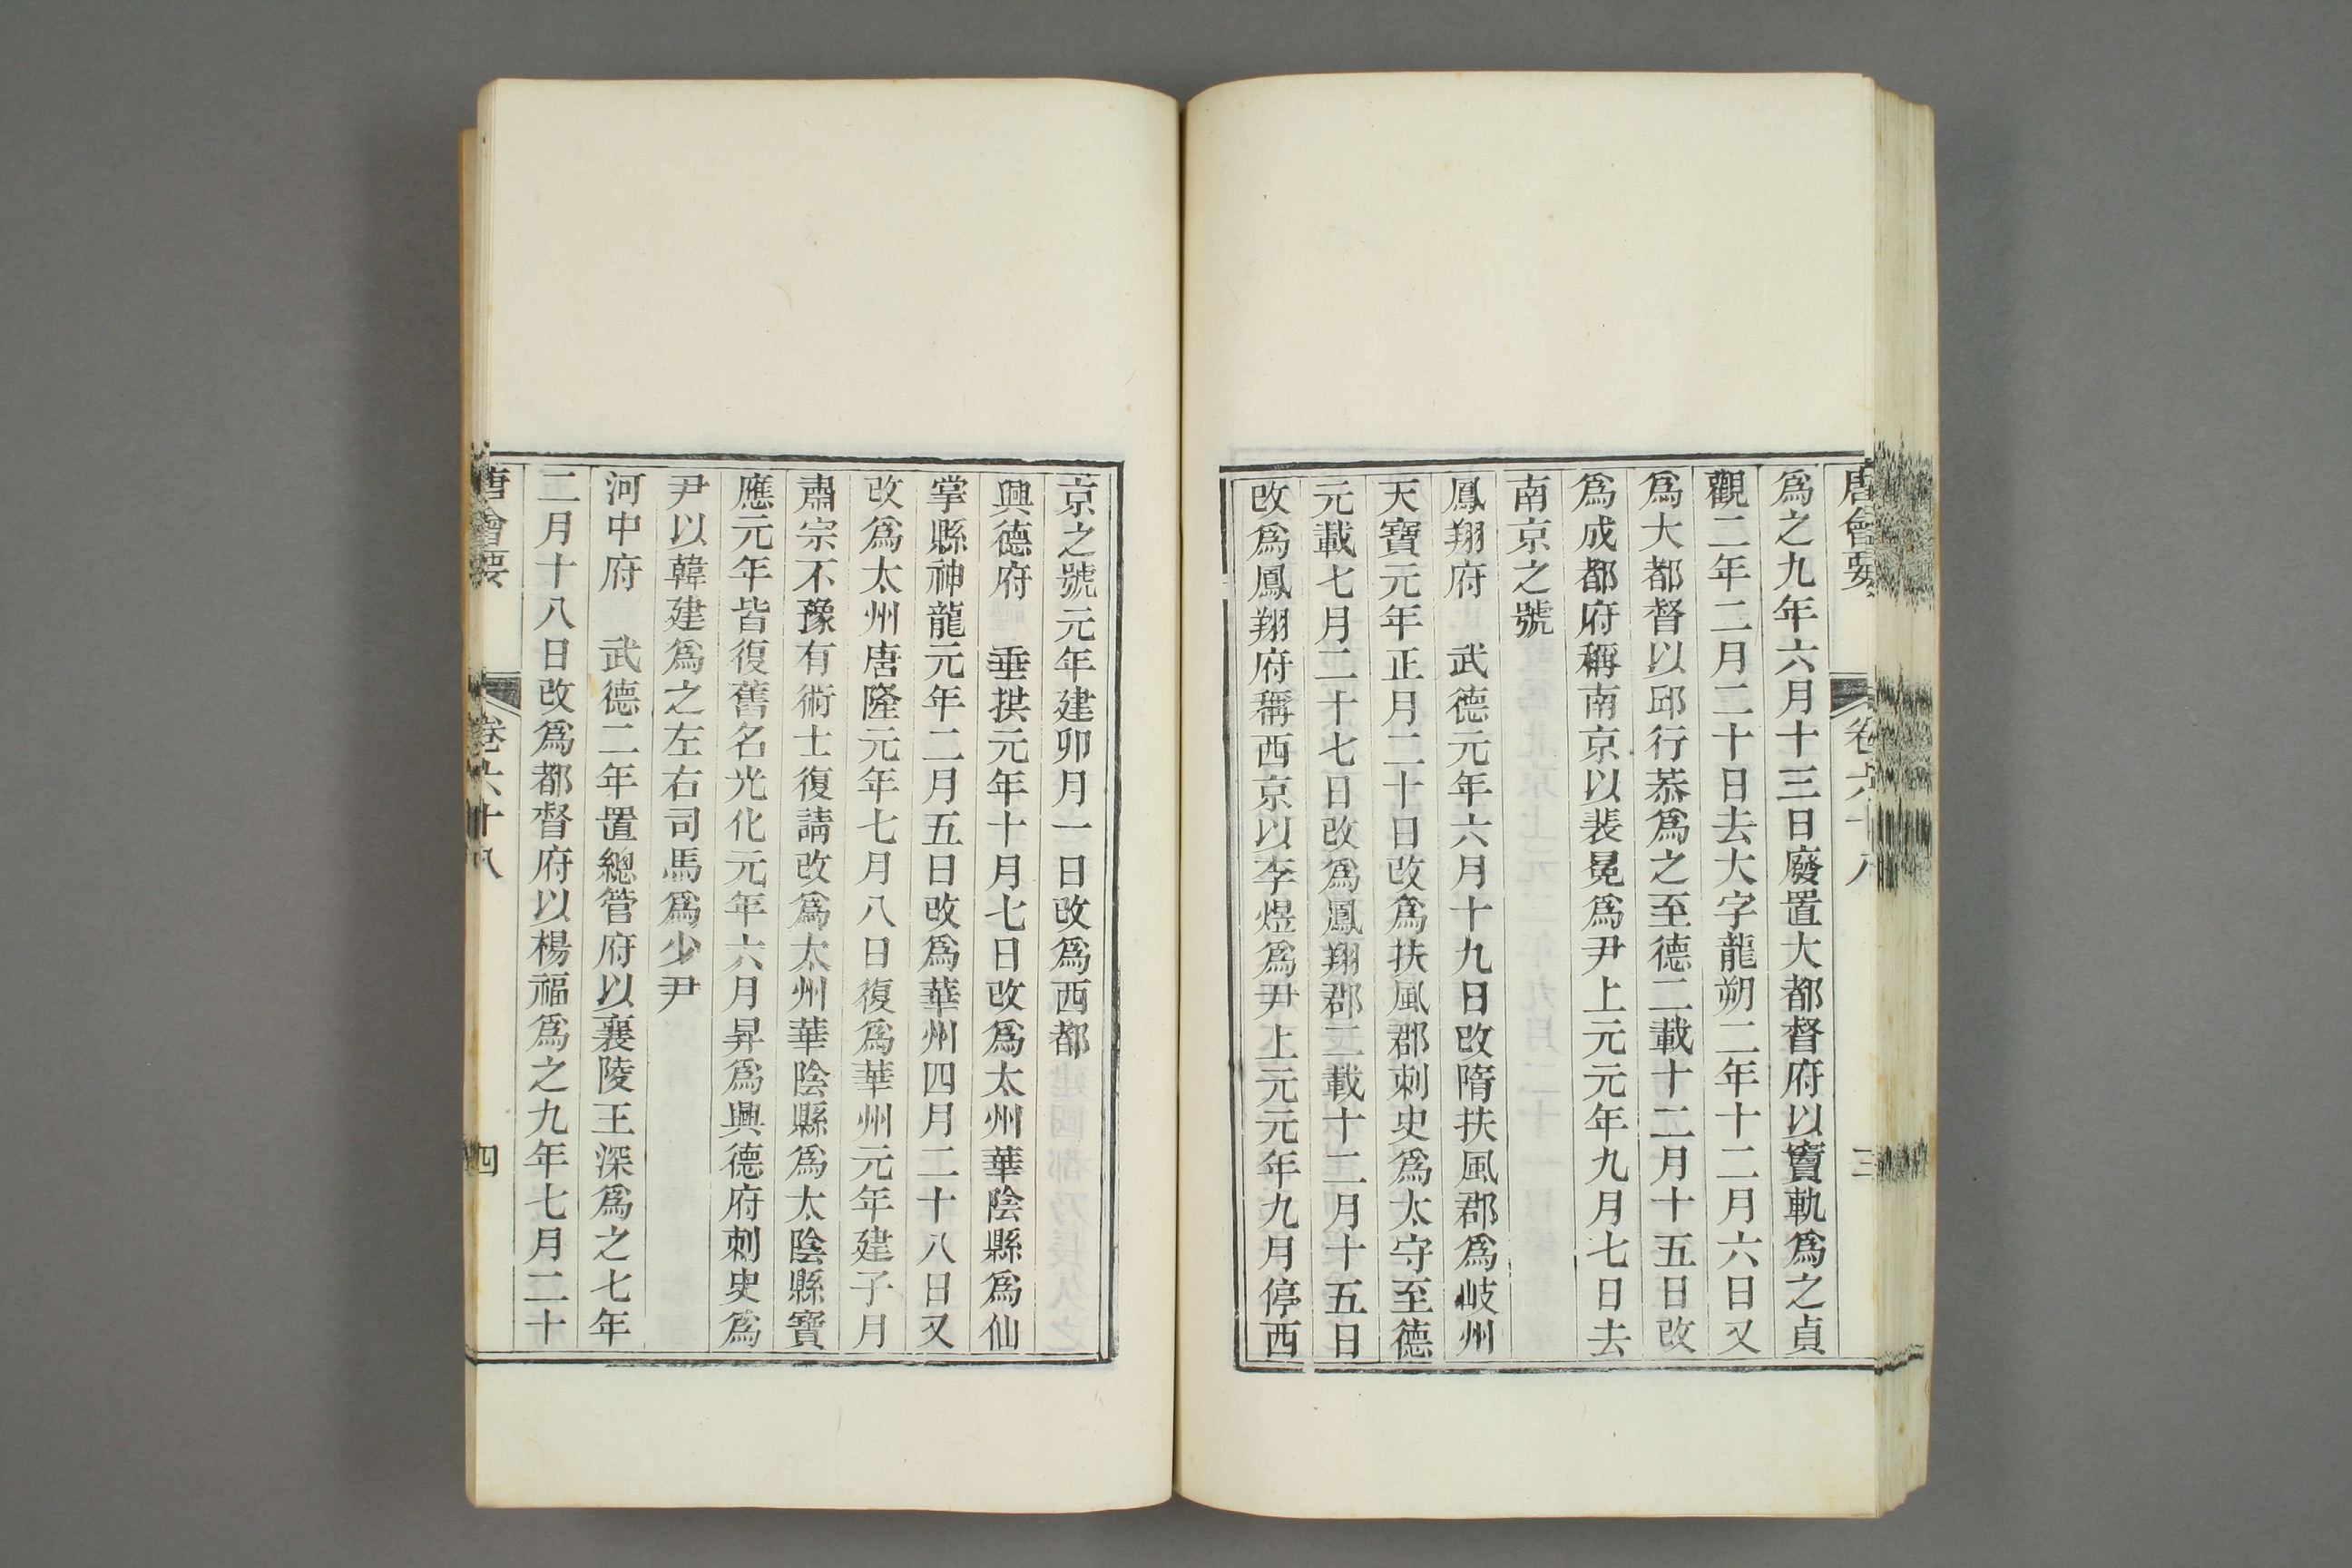 唐會要 卷六十八 三
爲之九年六月十三日廢置大都督府以竇軌爲之貞
觀二年二月二十日去大字龍朔二年十二月六日又
爲大都督以邱行恭爲之至德二載十二月十五日改
爲成都府稱南京以裴冕爲尹上元元年九月七日去
南京之號
鳳翔府 武德元年六月十九日改隋扶風郡爲岐州
天寶元年正月二十日改爲扶風郡刺史爲太守至德
元載七月二十七日改爲鳳翔郡二載十二月十五日
改爲鳳翔府稱西京以李煜爲尹上元元年九月停西
京之號元年建卯月一日改爲西都
興德府 垂拱元年十月七日改爲太州華陰縣爲仙
掌縣神龍元年二月五日改爲華州四月二十八日又
改爲太州唐隆元年七月八日復爲華州元年建子月
肅宗不豫有術士復請改爲太州華陰縣爲太陰縣寶
應元年皆復舊名光化元年六月昇爲興德府刺史爲
尹以韓建爲之左右司馬爲少尹
河中府 武德二年置總管府以襄陵王深爲之七年
二月十八日改爲都督府以楊福爲之九年七月二十
唐會要 卷六十八 四